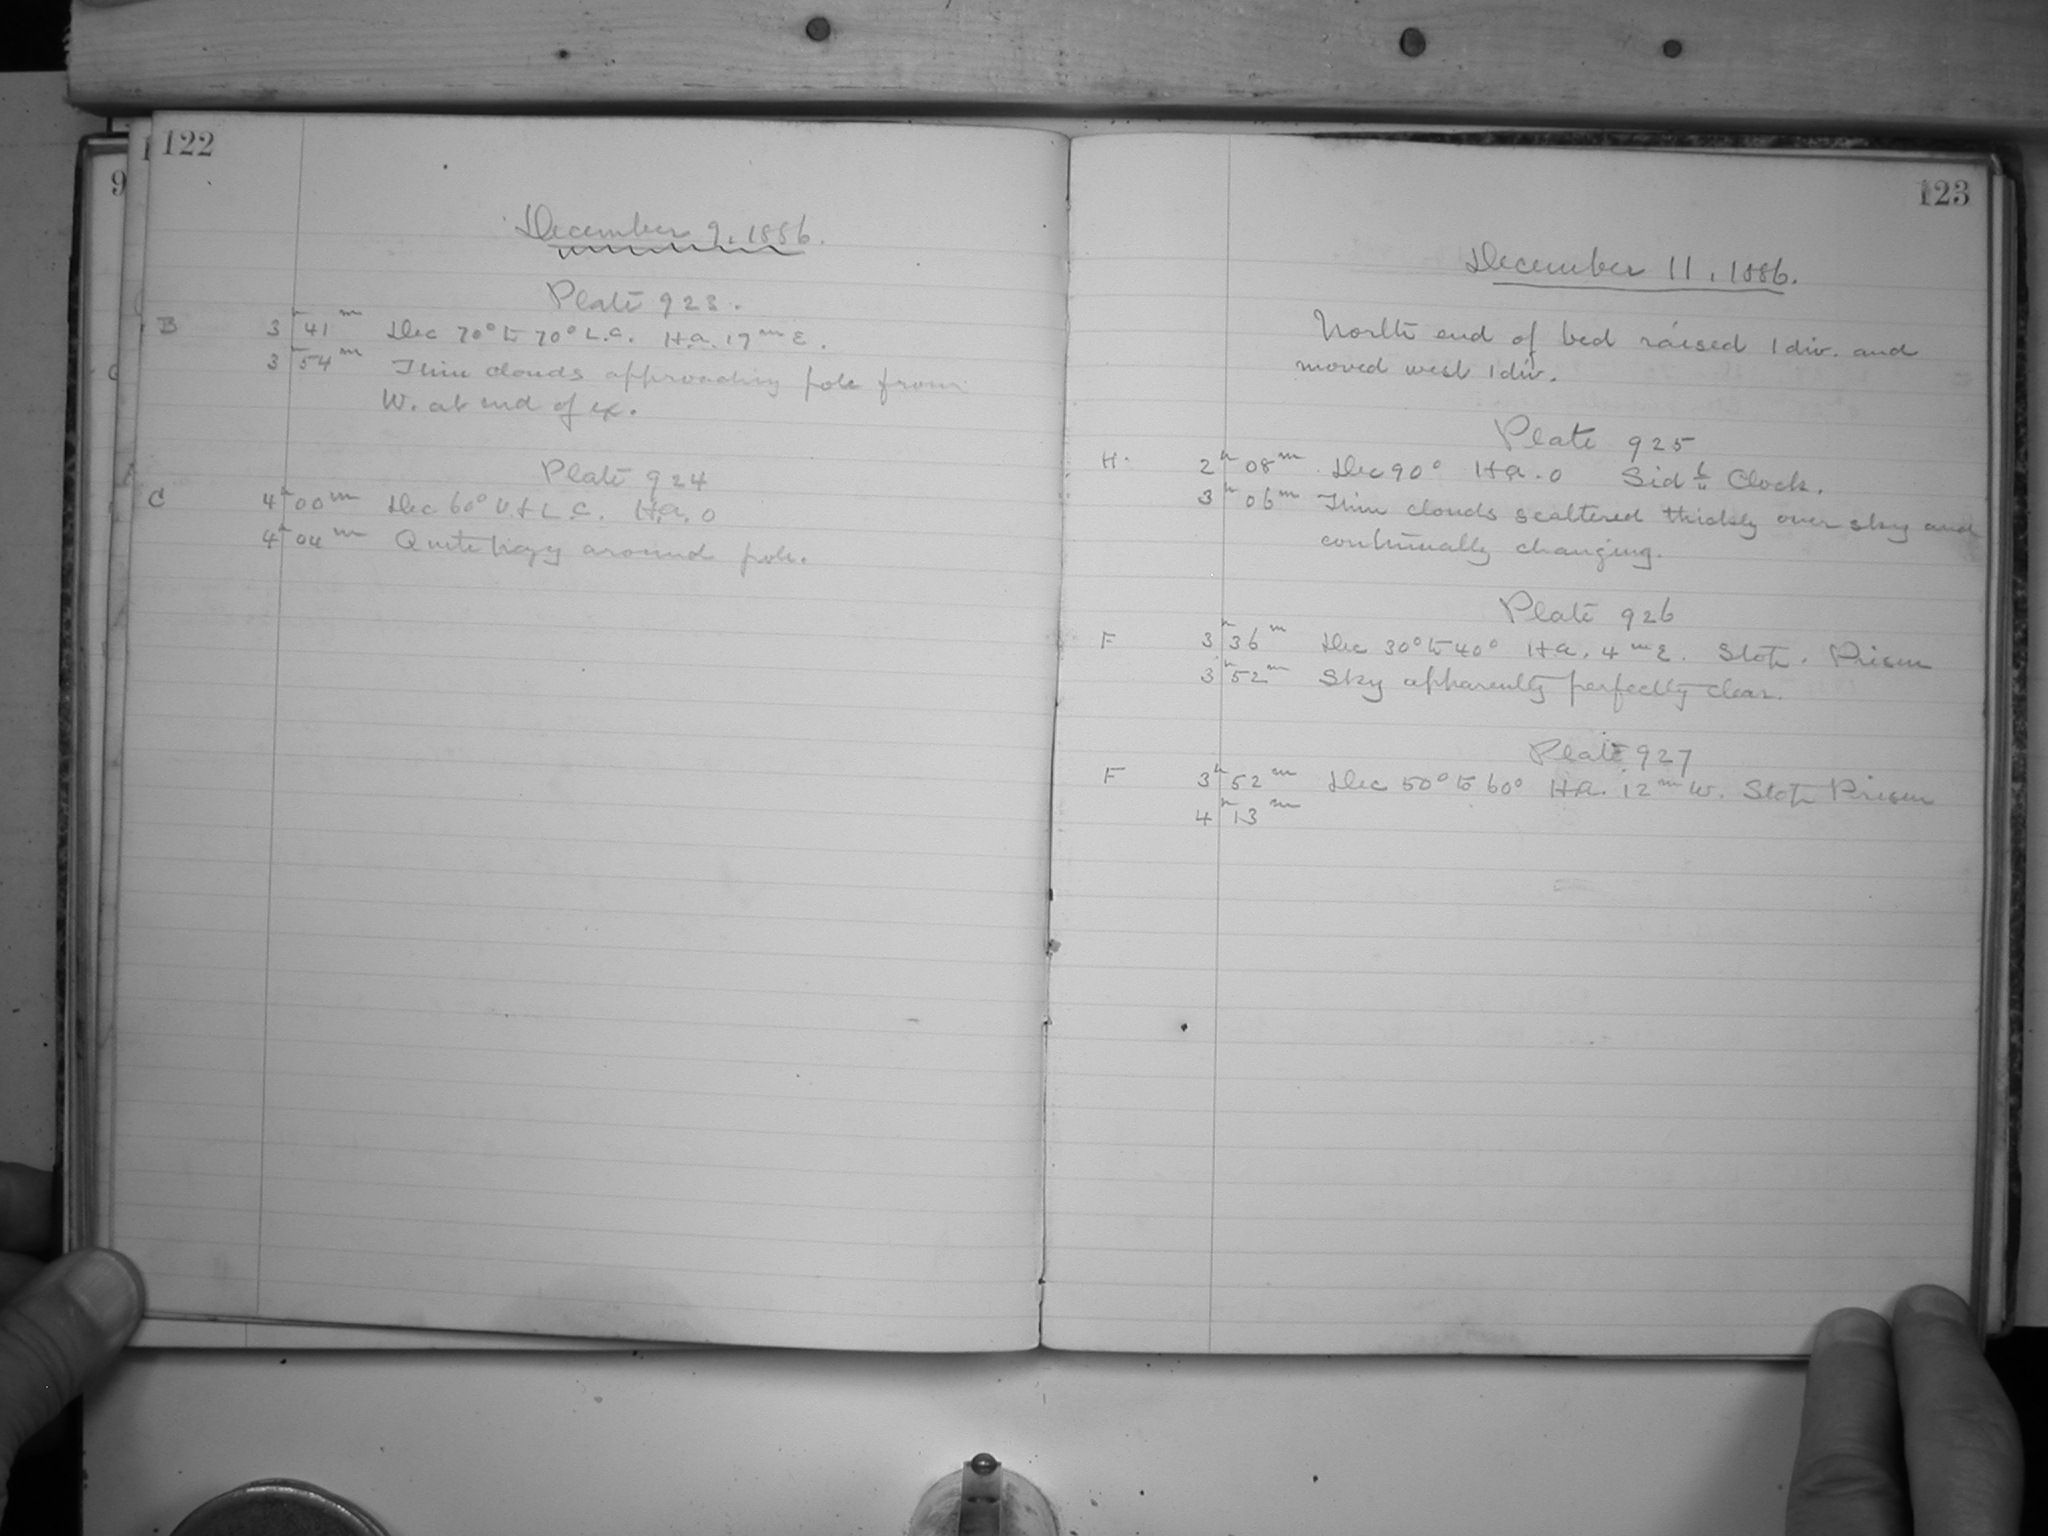 122
9
December 9, 1886.
Plate 923.
B 3h 41m Dec 70° to 70° L.C. H.A. 17m E.
3h 54m Thin clouds approaching pole from
W. at end of ex.
Plate 924
C 4h 00m Dec 60° U. & L.C. H.A. 0
4h 04m Quite hazy around pole.
123
December 11, 1886.
North end of bed raised 1 div. and
moved west 1 div.
Plate 925
H. 2h 08m Dec 90° H.A. 0 Sid Clock.
3h 06m Thin clouds scattered thickly over sky and
continually changing.
Plate 926
F 3h 36m Dec 30° to 40° H.A. 4m E. Stop. Prism
3h 52m Sky apparently perfectly clear.
Plate 927
F 3h 52m Dec 50° to 60° H.A. 12m W. Stop Prism
4h 13m